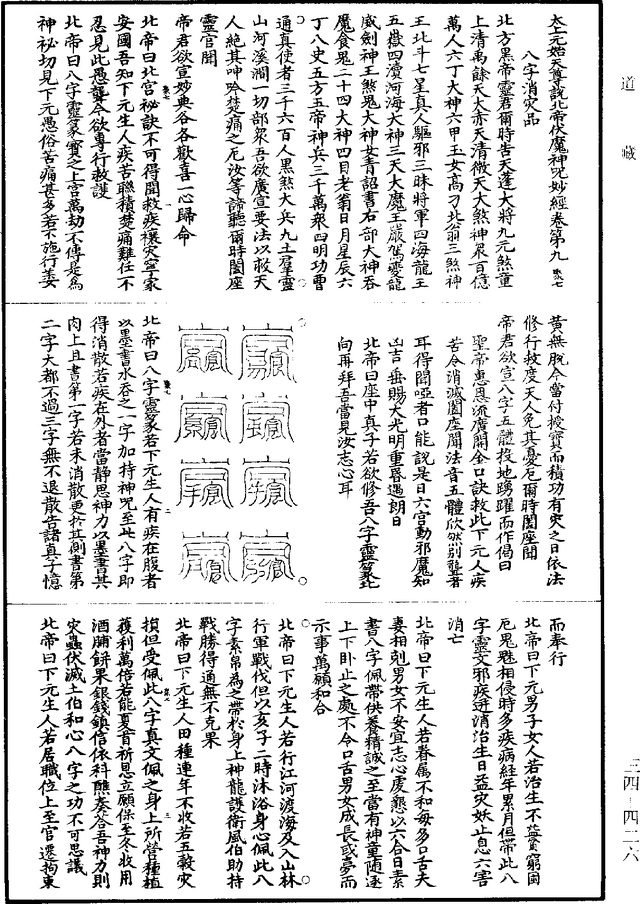 道藏
太上元始天尊說北帝伏魔神呪妙經卷第九 聚七
八字消灾品
北方黑帝靈君爾時告天蓬大將九元煞童
上清禹餘天太赤天清微天大煞神眾百億
萬人六丁大神六甲玉女高刁北翁三煞神
王北斗七星真人驅邪三昧將軍四海龍王
五嶽四瀆河海大神三天大魔王嚴駕夔龍
威劍神王煞鬼大神女青詔書右部大神吞
魔食鬼二十四大神四目老翁日月星辰六
丁八史五方五帝神兵三千萬眾四明功曹
通真使者三千六百人黑煞大兵九土羣靈
山河溪澗一切部眾吾欲廣宣要法以救天
人絕其呻吟楚痛之厄汝等諦聽爾時闔座
靈官聞
帝君欲宣妙典各各歡喜一心歸命
北帝曰北宮秘訣不可得聞救疾禳灾寧家
安國吾知下元生人疾苦聯積楚痛難任不
忍見此愚聾今欲專行救護
北帝曰八字靈篆實之上宮萬劫不傳是為
神秘切見下元愚俗苦痛甚多若不施行葦妄
黃無脫今當付授寶而積功有灾之日依法
修行救度天人免其憂厄爾時闔座聞
帝君欲宣八字五體投地踴躍而作偈曰
聖帝惠恩流廣開金口訣救此下元人疾
苦令消滅闔座聞法音五體欣然別聾者
耳得聞啞者口能說是日六宮動邪魔知
凶吉垂賜大光明重昏遇朗日
北帝曰座中真子若欲修吾八字靈篆北
向再拜吾當見汝志心耳
北帝曰八字靈篆若下元生人有疾在腹者
以墨書水吞之一字加持神呪至此八字即
得消散若疾在外者當静思神力以墨書其
肉上且書第一字若未消散更於其側書第
二字大都不過三字無不退散告諸真子憶
而奉行
北帝曰下元男子女人若治生不蠶貧窮困
厄鬼魅相侵時多疾病經年累月但帶此八
字靈文邪疾迸消治生日益灾妖止息六害
消亡
北帝曰下元生人若眷属不和每多口舌夫
妻相剋男女不安宜志心虔懇以六合日素
書八字佩帶供養精誠之至當有神童隨逐
上下卧止之處不令口舌男女成長或夢而
示事萬願和合
北帝曰下元生人若行江河渡海及入山林
行軍戰伐但以亥子二時沐浴身心佩此八
字素帛為之帶於身上神龍護衛風伯助持
戰勝得通無不克果
北帝曰下元生人田種連年不收若五穀灾
損但受佩此八字真文佩之身上所營種植
獲利萬倍若能夏首祈恩立願保至冬收用
酒脯餅果銀錢鎮信依科醮奏荅吾神力則
灾蟲伏滅土伯和心八字之功不可思議
北帝曰下元生人若居職位上至官遷拘束
三四—四二六